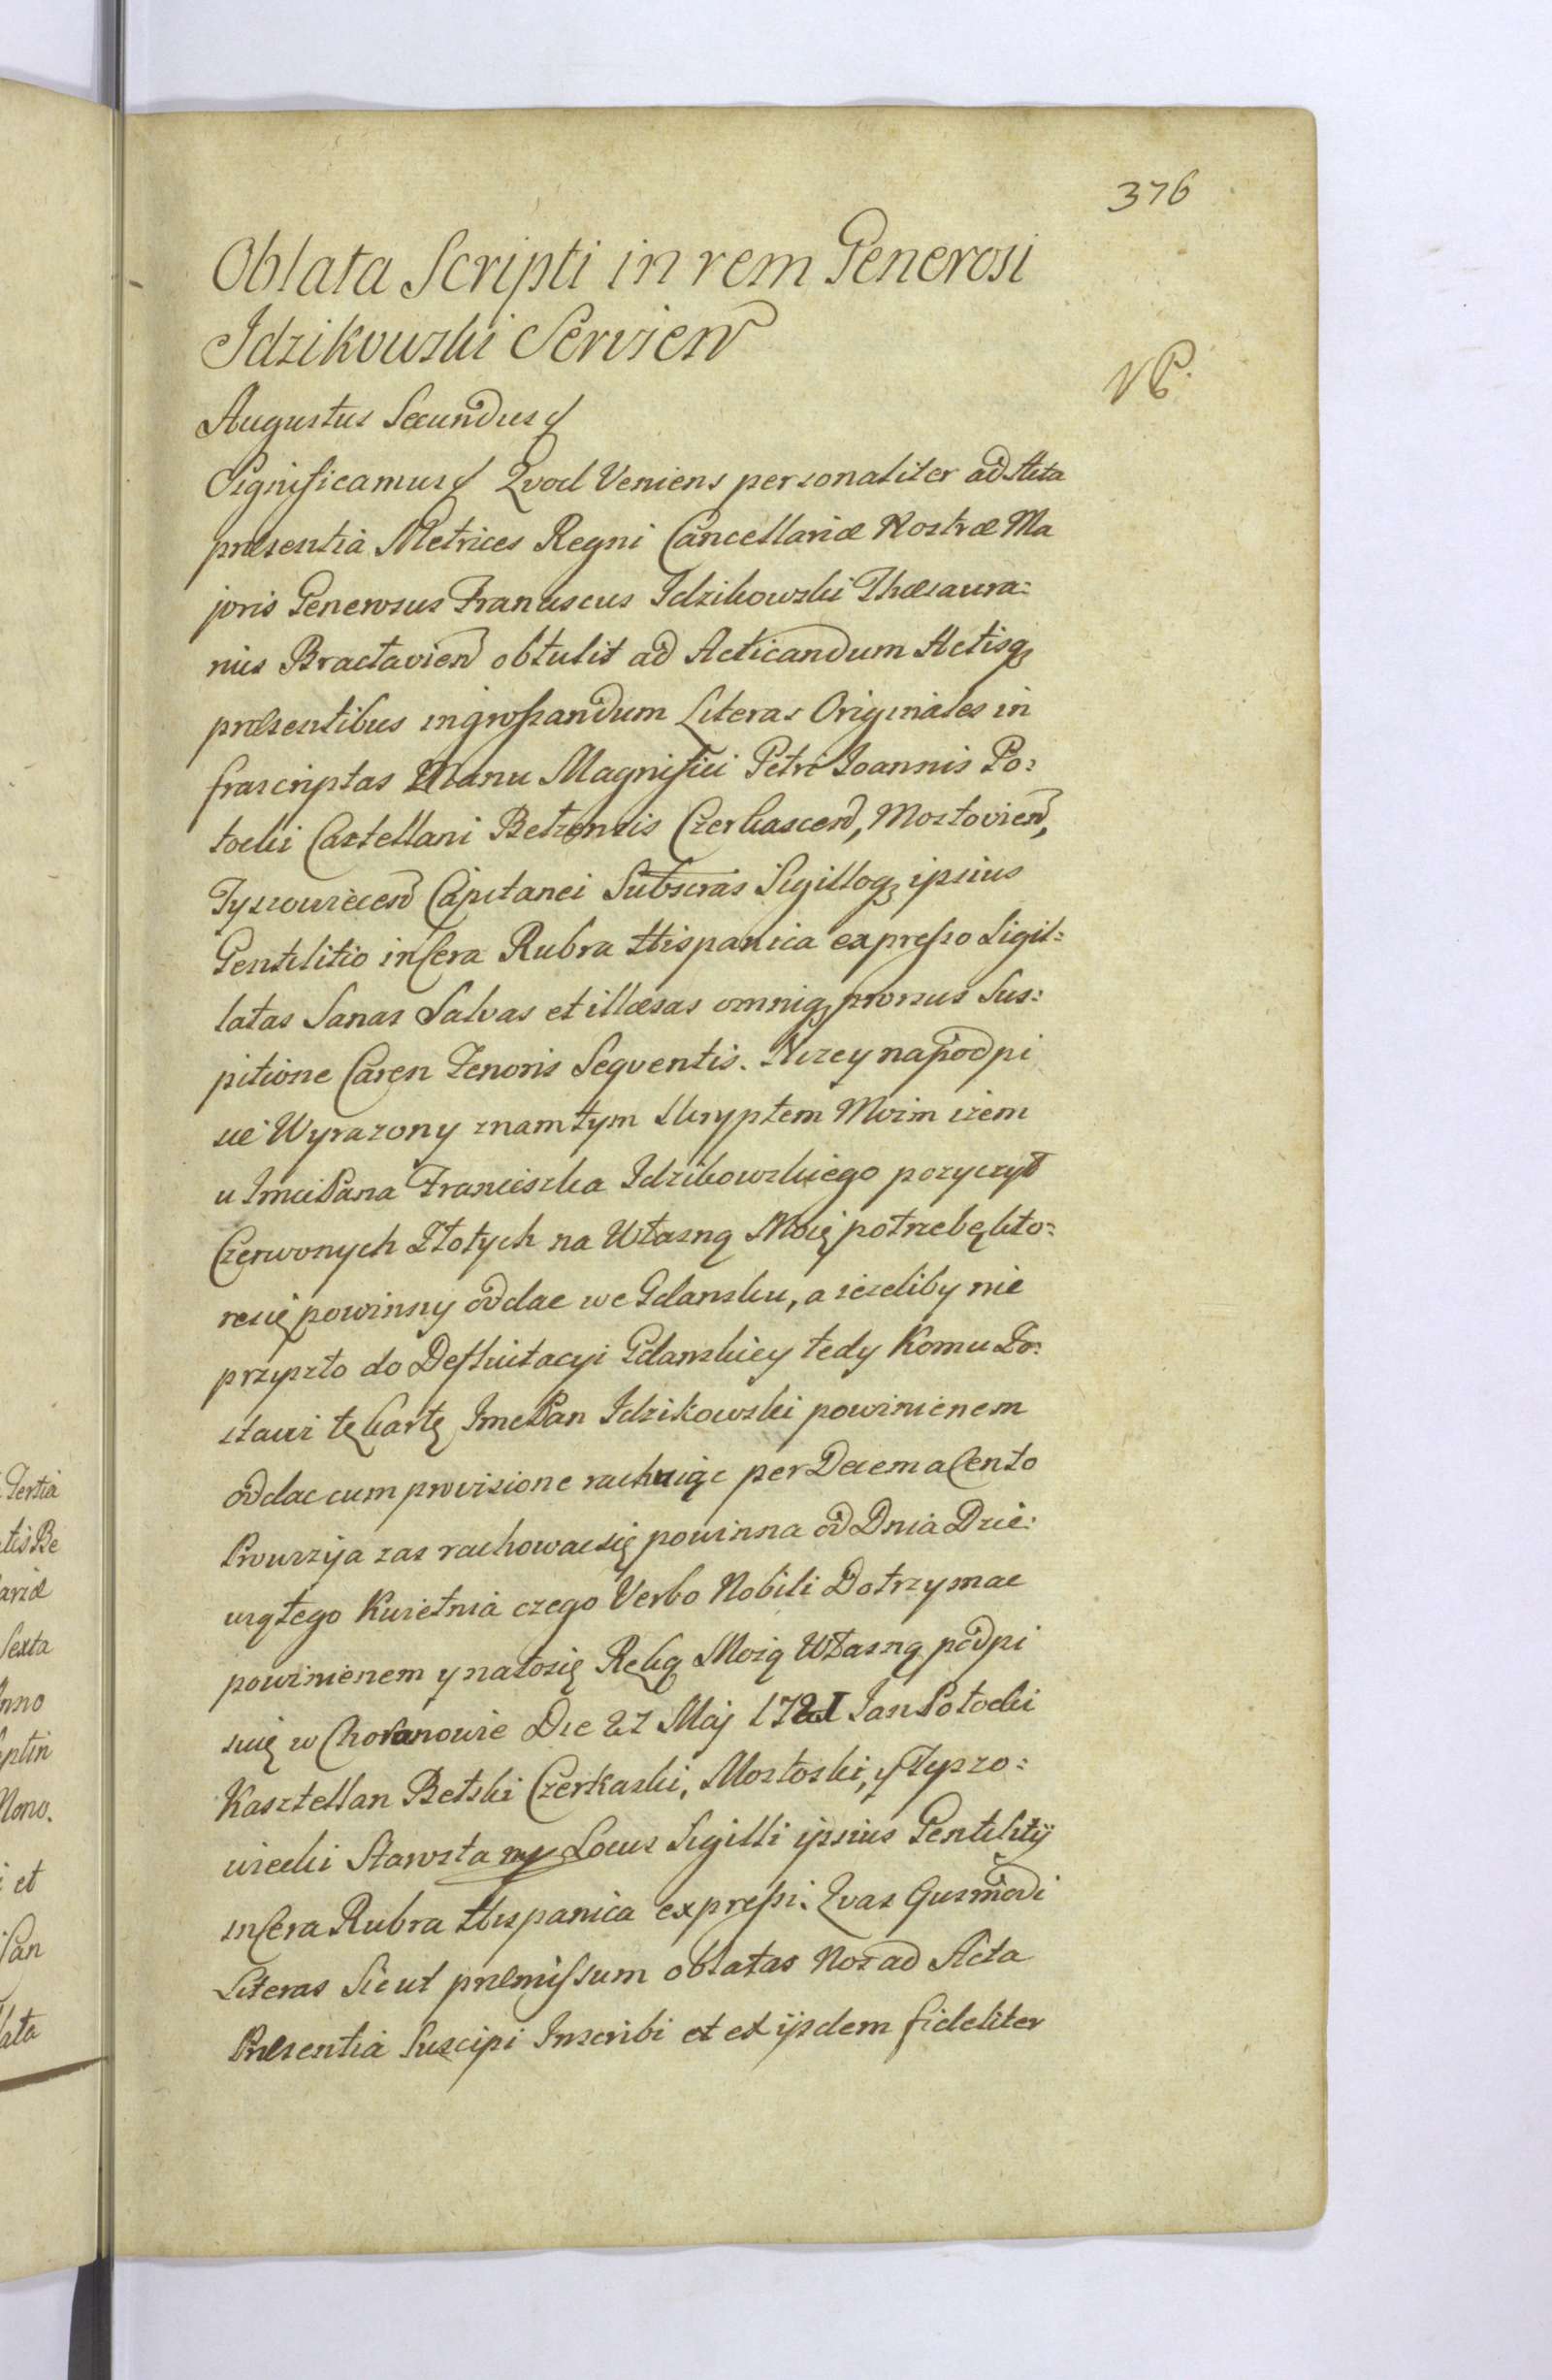 376
Oblata Scripti in rem Generosi
Idzikowski Servien
NP.
Augustus Secundus
Significamus Qvod Veniens personaliter ad Acta
præsentia Metrices Regni Cancellariæ Nostræ Ma
joris Generosus Franciscus Idzikowski Thæsaura:
rius Bractavien obtulit ad Acticandum Actisq
præsentibus ingrossandum Literas Originales in
frascriptas Manu Magnifici Petri Joannis Po:
tocki Castellani Betzensis Czerkascen, Mostovien,
Tyszowiecen Capitanei Subscras Sigilloq ipsius
Gentilitio in Cera Rubra Hispanica expresso Sigil:
latas Sanas Salvas et illæsas omniq prorsus Sus:
pitione Caren Tenoris Seqventis. Nizey na podpi
sie Wyrazony znam tym Skryptem Moim izem
u Imci Pana Franciszka Idzikowskiego pozyczył
Czerwonych Złotych na Własną Moię potrzebę kto:
re się powinny oddac we Gdansku, a iezeliby nie
przyszło do Defluitacyi Gdanskiey tedy Komu Zo:
stawi tę kartę Imc Pan Idzikowski powinienem
oddac cum provisione rachuiąc per Decem a Cento
Prowizyja zas rachowac się powinna od Dnia Dzie:
wiątego Kwietnia czego Verbo Nobili Dotrzymac
powinienem y na to się Ręką Moią Własną podpi
suię w Choranowie Die 27 Maj 1721 Jan Potocki
Kasztellan Betski Czerkaski, Mostoski, y Tyszo:
wiecki Starosta mp Locus Sigilli ipsius Gentilitÿ
in Cera Rubra Hispanica expressi. Qvas Qusmodi
Literas Sicut præmissum oblatas Nos ad Acta
Præsentia Suscipi Inscribi et ex ijsdem fideliter
Tertia
tis Be
ariæ
Sexta
nno
ptin
Nono.
i et
San
lata